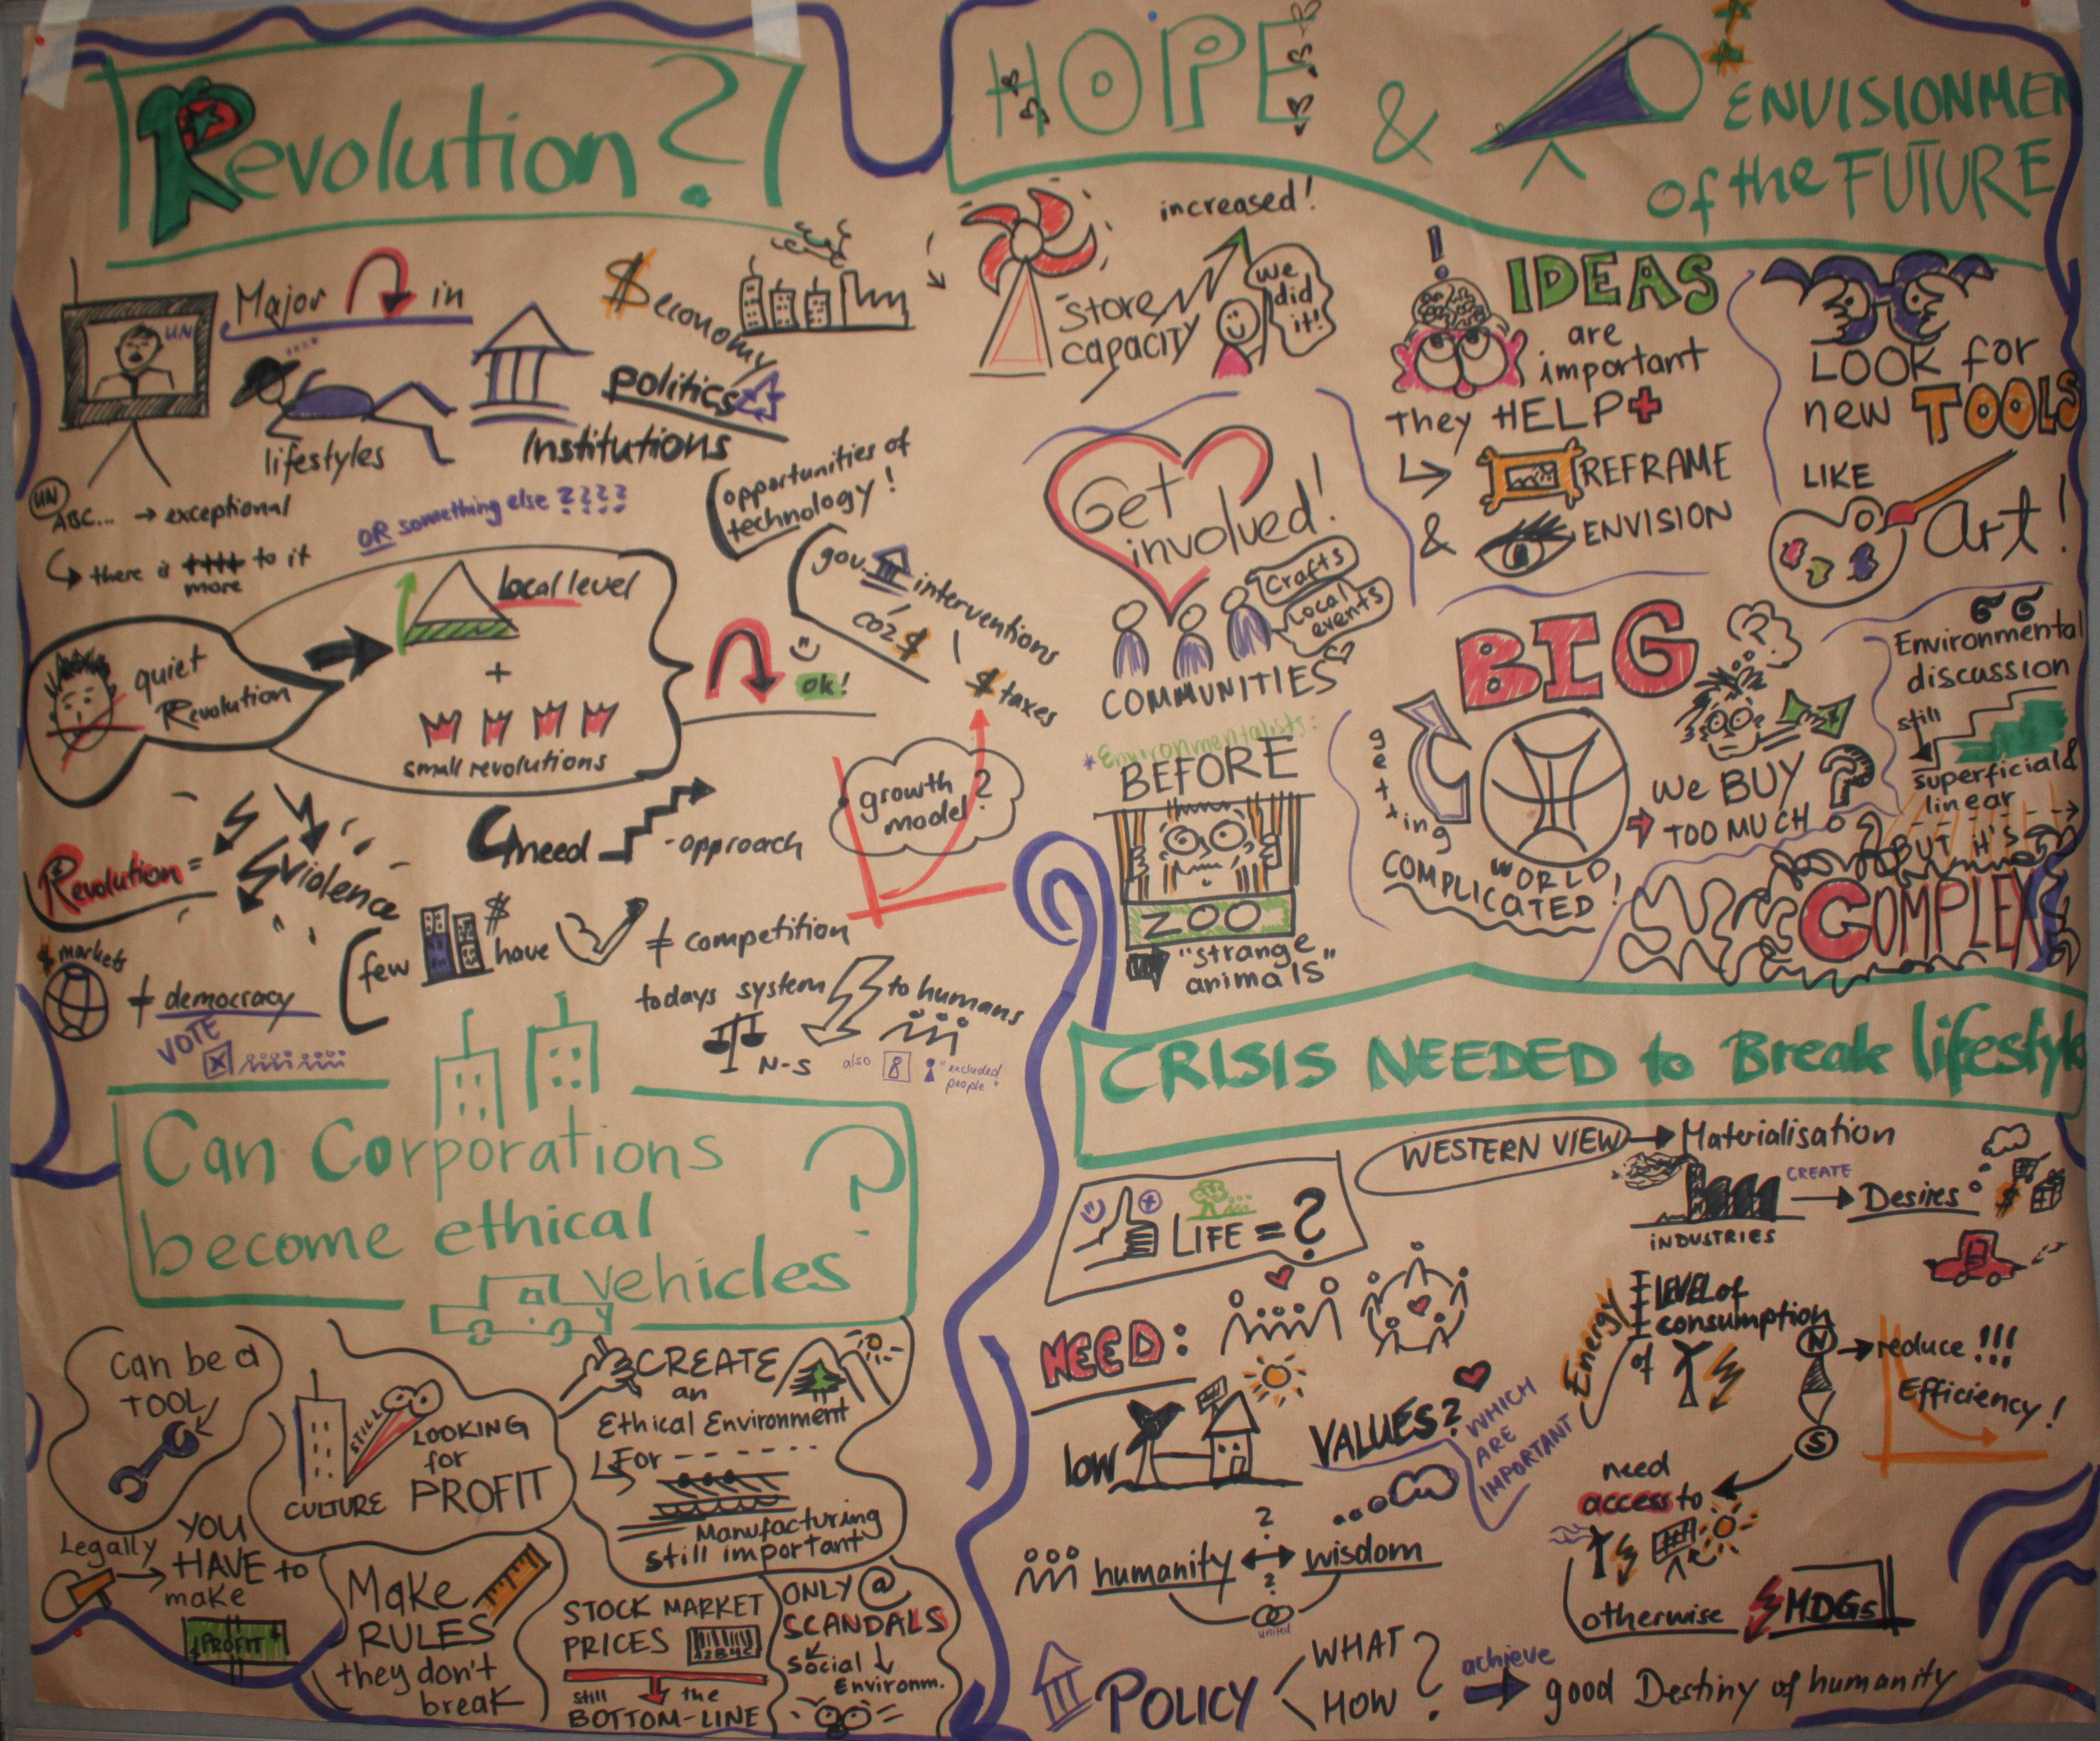 Revolution?
UN
Major in
$economy
lifestyles
Institutions
politics
UN
ABC... → exceptional
there is more to it
OR something else ????
opportunities of
technology!
gov interventions
CO2 $
$ taxes
quiet
Revolution
local level
+
small revolutions
ok!
growth
model?
Revolution =
Violence
need -approach
few $ have ≠ competition
$ markets
≠ democracy
VOTE
todays system to humans
N-S
also 8 "excluded
people"
Can Corporations
become ethical
vehicles?
Can be a
TOOL
STILL
LOOKING
for
PROFIT
CULTURE
CREATE
an
Ethical Environment
For - - - - - -
Manufacturing
still important
Legally
YOU
HAVE to
make
PROFIT
Make
RULES
they don't
break
STOCK MARKET
PRICES
still the
BOTTOM-LINE
ONLY @
SCANDALS
Social
Environm.
HOPE &
ENVISIONMEN
of the FUTURE
increased!
store
capacity
we
did
it!
IDEAS
are
important
they HELP+
REFRAME
& ENVISION
LOOK for
new TOOLS
LIKE
Art!
Get
involved!
Crafts
Local
events
COMMUNITIES
*Environmentalists:
BEFORE
ZOO
"strange
animals"
BIG
getting
COMPLICATED
WORLD!
?
We BUY
TOO MUCH
?
Environmental
discussion
still
superficial &
linear
BUT it's
COMPLEX
CRISIS NEEDED to Break lifestyle
WESTERN VIEW → Materialisation
INDUSTRIES
CREATE
Desires
$
LIFE = ?
NEED:
low
VALUES?
WHICH
ARE
IMPORTANT
Energy
LEVEL of
consumption
of
N → reduce !!!
Efficiency!
S
need
access to
otherwise MDGs
humanity ↔ wisdom
?
?
united
POLICY
WHAT
HOW
?
achieve
good Destiny of humanity